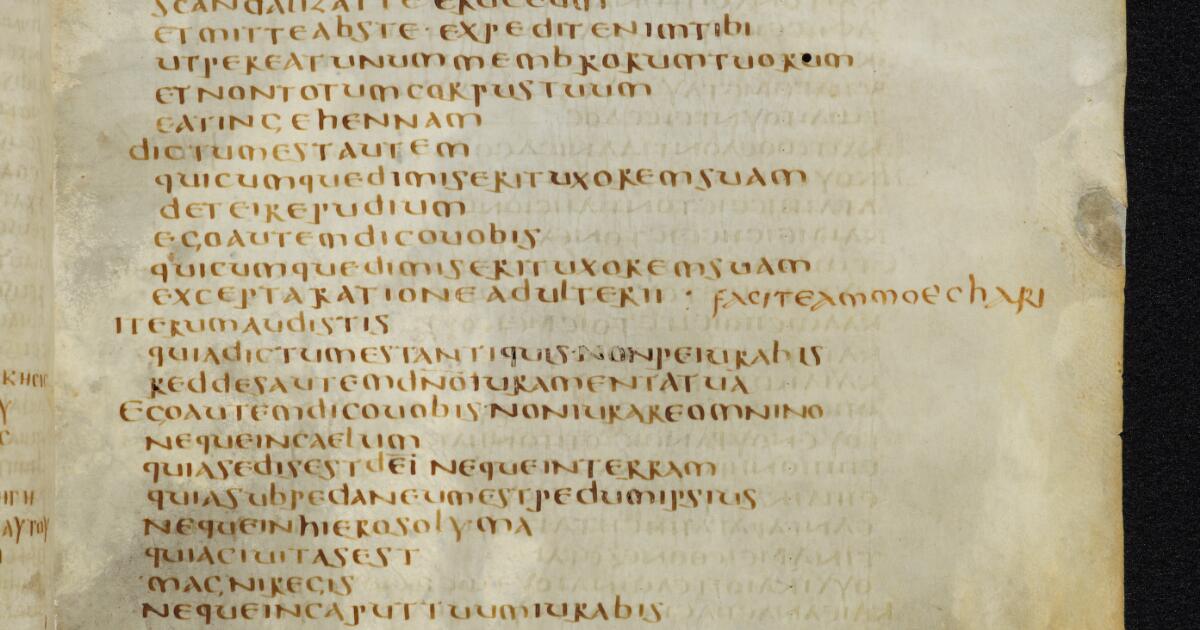 SCANDALIZAT TE ERUE EUM
ETMITTEABSTE·EXPEDITENIMTIBI
UTPEREATUNUMMEMBRORUMTUORUM
ETNONTOTUMCORPUSTUUM
EATINGEHENNAM
DICTUMESTAUTEM
QUICUMQUEDIMISERITUXOREMSUAM
DETEIREPUDIUM
EGOAUTEMDICOUOBIS
QUICUMQUEDIMISERITUXOREMSUAM
EXCEPTARATIONEADULTERII · FACITEAMMOECHARI
ITERUMAUDISTIS
QUIADICTUMESTANTIQUIS·NONPEIURABIS
REDDESAUTEMDNŌIURAMENTATUA
EGOAUTEMDICOUOBIS·NONIURAREOMNINO
NEQUEINCAELUM
QUIASEDISESTDEĪ NEQUEINTERRAM
QUIASUBPEDANEUMESTPEDUMIPSIUS
NEQUEINHIEROSOLYMA
QUIACIUITASEST
MAGNIREGIS
NEQUEINCAPUTTUUMIURABIS